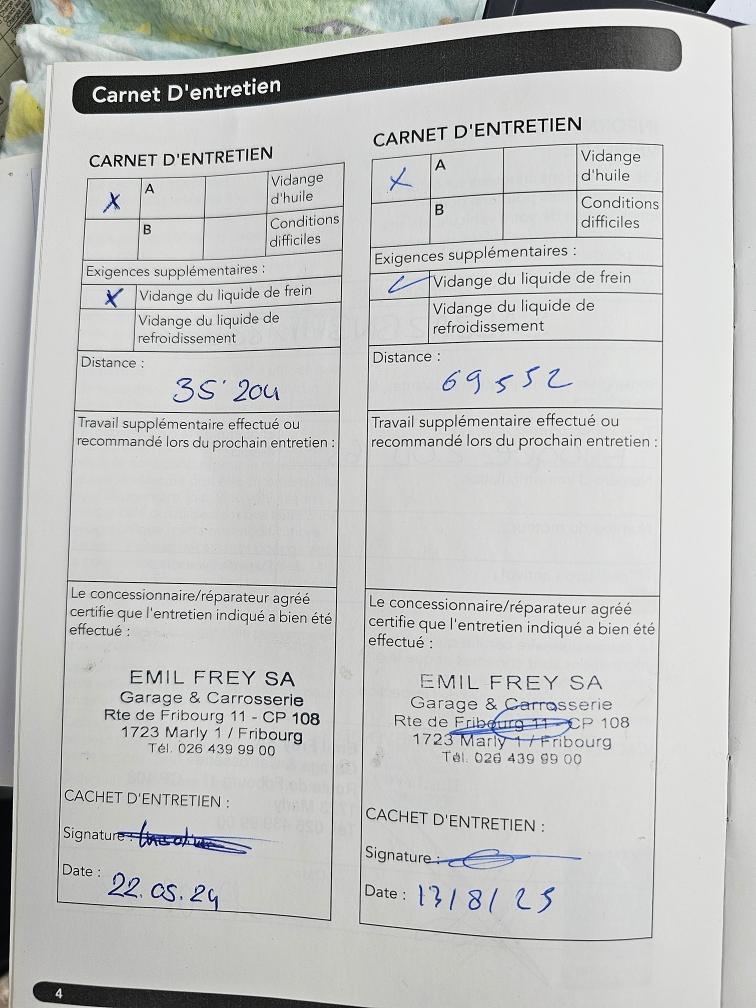 Carnet D'entretien
CARNET D'ENTRETIEN
X A Vidange d'huile
B Conditions difficiles
Exigences supplémentaires :
X Vidange du liquide de frein
Vidange du liquide de
refroidissement
Distance :
35'204
Travail supplémentaire effectué ou
recommandé lors du prochain entretien :
Le concessionnaire/réparateur agréé
certifie que l'entretien indiqué a bien été
effectué :
EMIL FREY SA
Garage & Carrosserie
Rte de Fribourg 11 - CP 108
1723 Marly 1 / Fribourg
Tél. 026 439 99 00
CACHET D'ENTRETIEN :
Signature :
Date : 22.05.24
CARNET D'ENTRETIEN
X A Vidange d'huile
B Conditions difficiles
Exigences supplémentaires :
Vidange du liquide de frein
Vidange du liquide de
refroidissement
Distance :
69552
Travail supplémentaire effectué ou
recommandé lors du prochain entretien :
Le concessionnaire/réparateur agréé
certifie que l'entretien indiqué a bien été
effectué :
EMIL FREY SA
Garage & Carrosserie
Rte de Fribourg 11 - CP 108
1723 Marly 1 / Fribourg
Tél. 026 439 99 00
CACHET D'ENTRETIEN :
Signature :
Date : 13/8/25
4